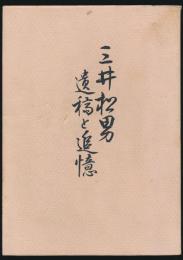 三井松男
遺稿と追憶